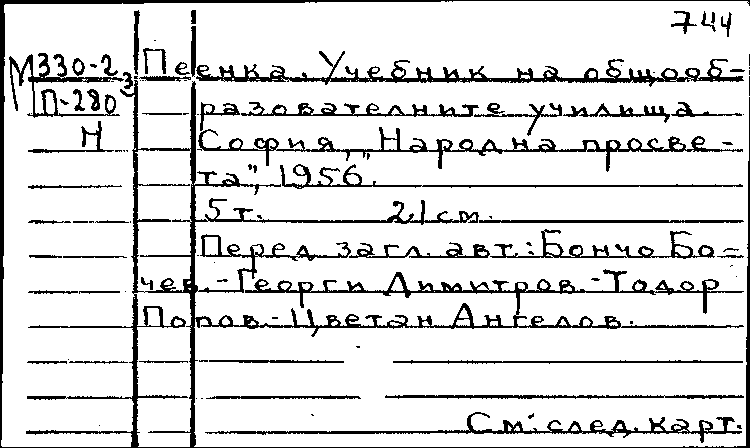 744
М330-2з Пеенка. Учебник на общооб=
П-280 разователните училища.
Н София, „Народна просве-
та", 1956.
5 т. 21 см.
Перед загл. авт.: Бончо Бо=
чев.-Георги Димитров.-Тодор
Попов.-Цветан Ангелов.
См. след. карт.